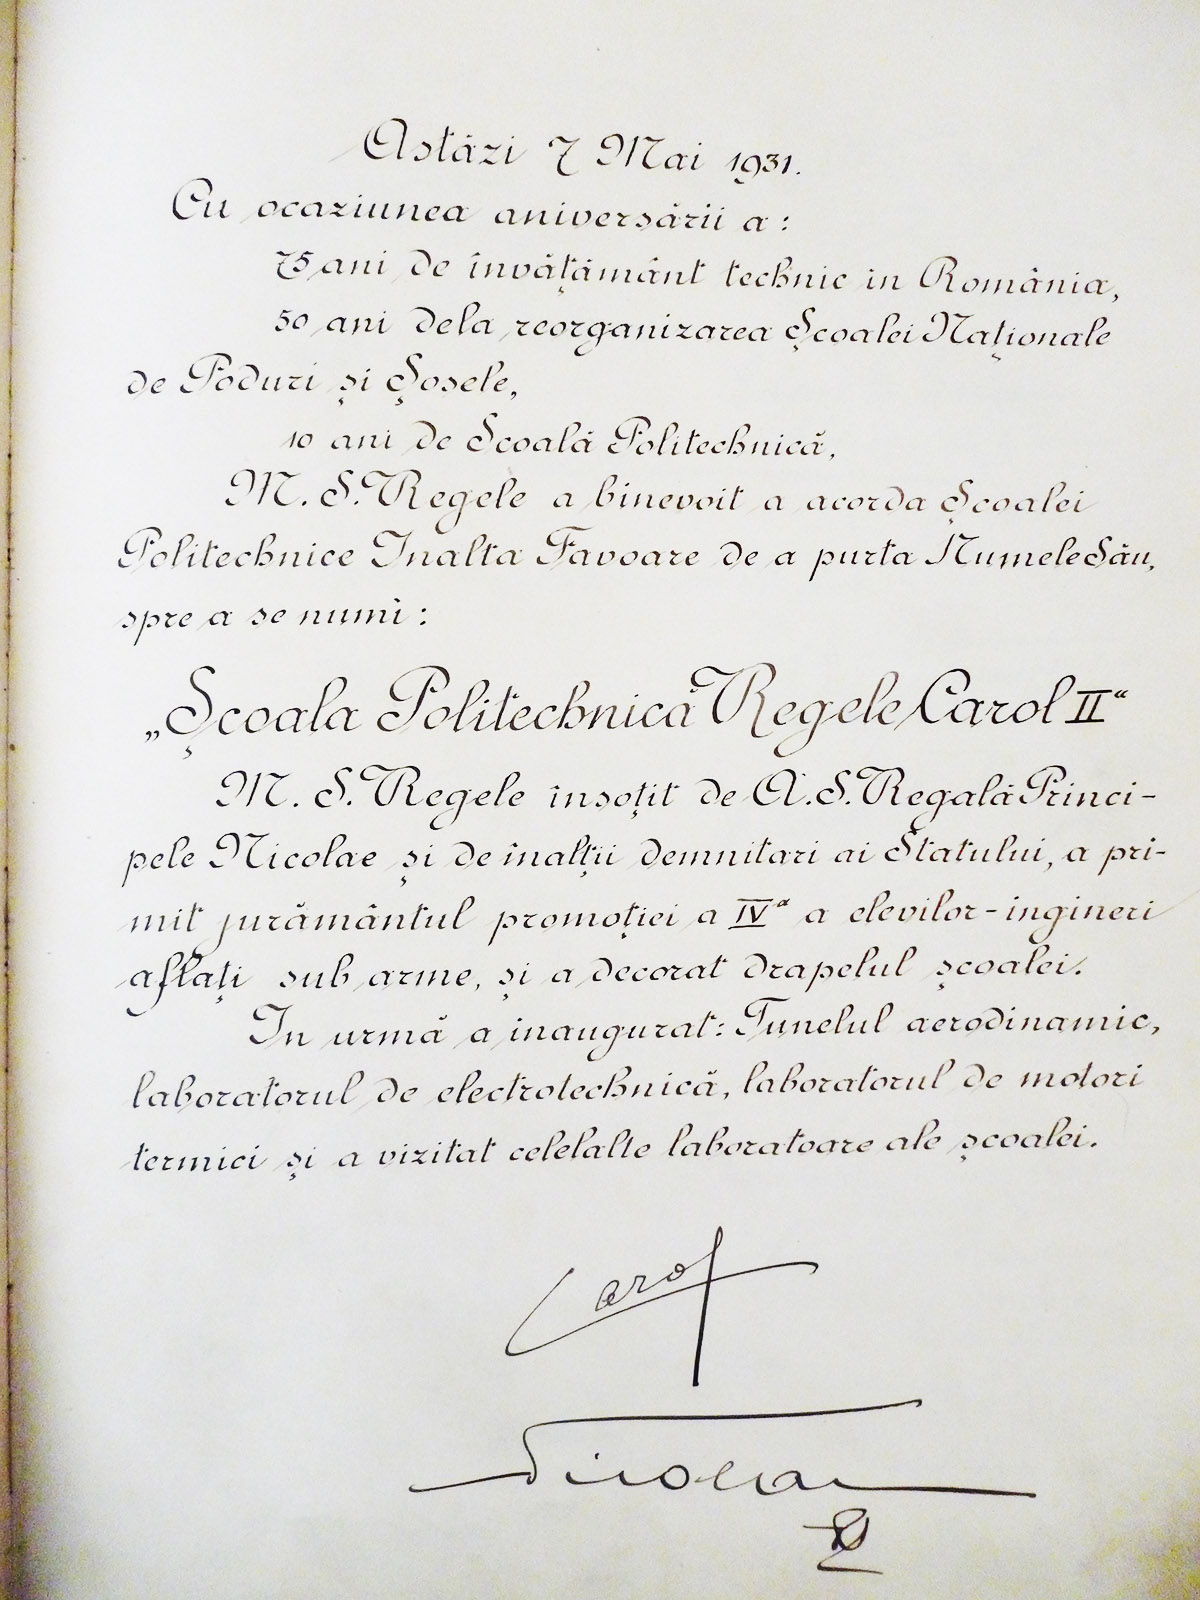 Astăzi 7 Mai 1931.
Cu ocaziunea aniversării a:
75 ani de învăţământ technic in România,
50 ani dela reorganizarea Şcoalei Naţionale
de Poduri şi Şosele,
10 ani de Scoală Politechnică,
M. S. Regele a binevoit a acorda Şcoalei
Politechnice Inalta Favoare de a purta Numele Său,
spre a se numi:
„Şcoala Politechnică Regele Carol II“
M. S. Regele însoţit de A. S. Regală Princi-
pele Nicolae şi de înalţii demnitari ai Statului, a pri-
mit jurământul promoţiei a IVª a elevilor-ingineri
aflaţi sub arme, şi a decorat drapelul şcoalei.
In urmă a inaugurat: Tunelul aerodinamic,
laboratorul de electrotechnică, laboratorul de motori
termici şi a vizitat celelalte laboratoare ale şcoalei.
Carol
Nicolae